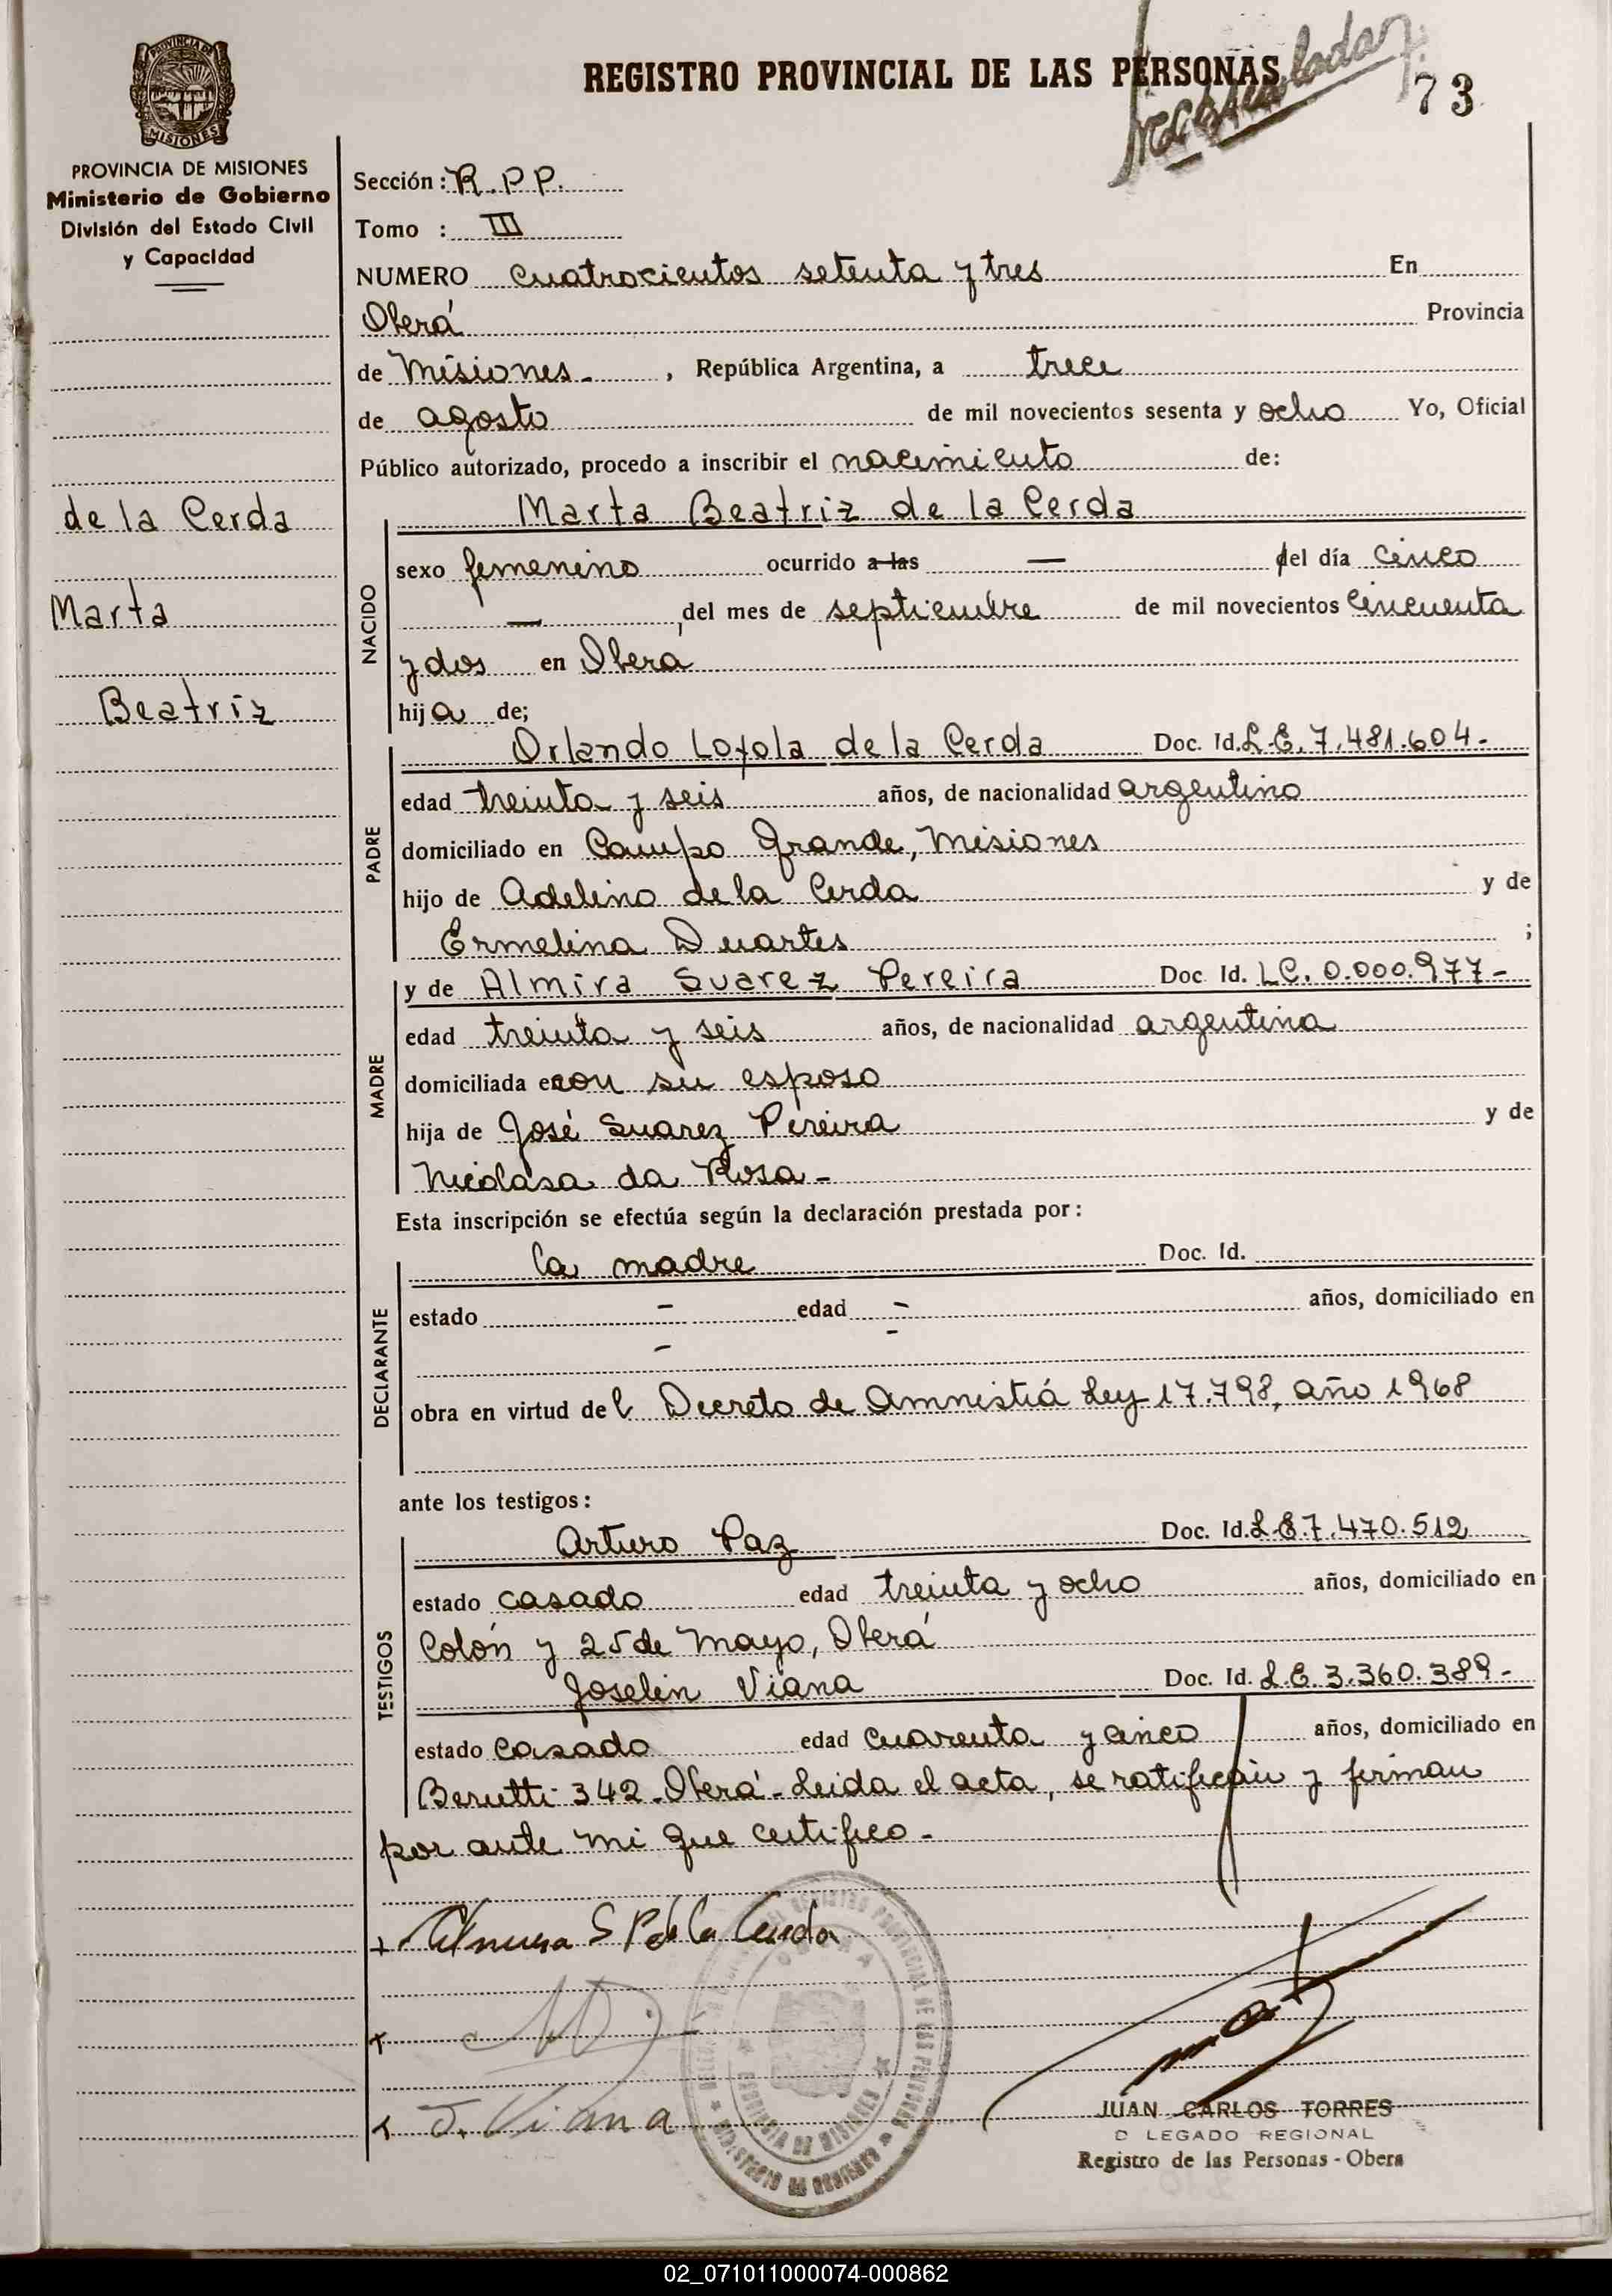 REGISTRO PROVINCIAL DE LAS PERSONAS
73
PROVINCIA DE MISIONES
PROVINCIA DE MISIONES
Ministerio de Gobierno
División del Estado Civil
y Capacidad
de la Cerda
Marta
Beatriz
Sección: R.P.P.
Tomo : III
NUMERO cuatrocientos setenta y tres En
Oberá Provincia
de Misiones- , República Argentina, a trece
de agosto de mil novecientos sesenta y ocho Yo, Oficial
Público autorizado, procedo a inscribir el nacimiento de:
NACIDO
Marta Beatriz de la Cerda
sexo femenino ocurrido a las — del día cinco
— del mes de septiembre de mil novecientos cincuenta
y dos en Oberá
hija de;
PADRE
Orlando Loyola de la Cerda Doc. Id. L.E. 7.481.604-
edad treinta y seis años, de nacionalidad argentino
domiciliado en Campo Grande, Misiones
hijo de Adelino de la Cerda y de
Ermelina Duartes ;
MADRE
y de Almira Suarez Pereira Doc. Id. LC. 0.000.977-
edad treinta y seis años, de nacionalidad argentina
domiciliada con su esposo
hija de José Suarez Pereira y de
Nicolasa da Rosa-
Esta inscripción se efectúa según la declaración prestada por:
DECLARANTE
la madre Doc. Id.
estado - edad - años, domiciliado en
-
obra en virtud del Decreto de Amnistiá Ley 17.798, año 1968
ante los testigos:
TESTIGOS
Arturo Paz Doc. Id. L.E 7.470.512
estado casado edad treinta y ocho años, domiciliado en
Colón y 25 de Mayo, Oberá
Joselin Viana Doc. Id. L.E. 3.360.389-
estado casado edad cuarenta y cinco años, domiciliado en
Berutti 342-Oberá-Leida el acta, se ratifican y firman
por ante mi que certifico-
Almira S P de la Cerda
J. Viana
PROVINCIA DE MISIONES
JUAN CARLOS TORRES
D LEGADO REGIONAL
Registro de las Personas - Obera
02_071011000074-000862